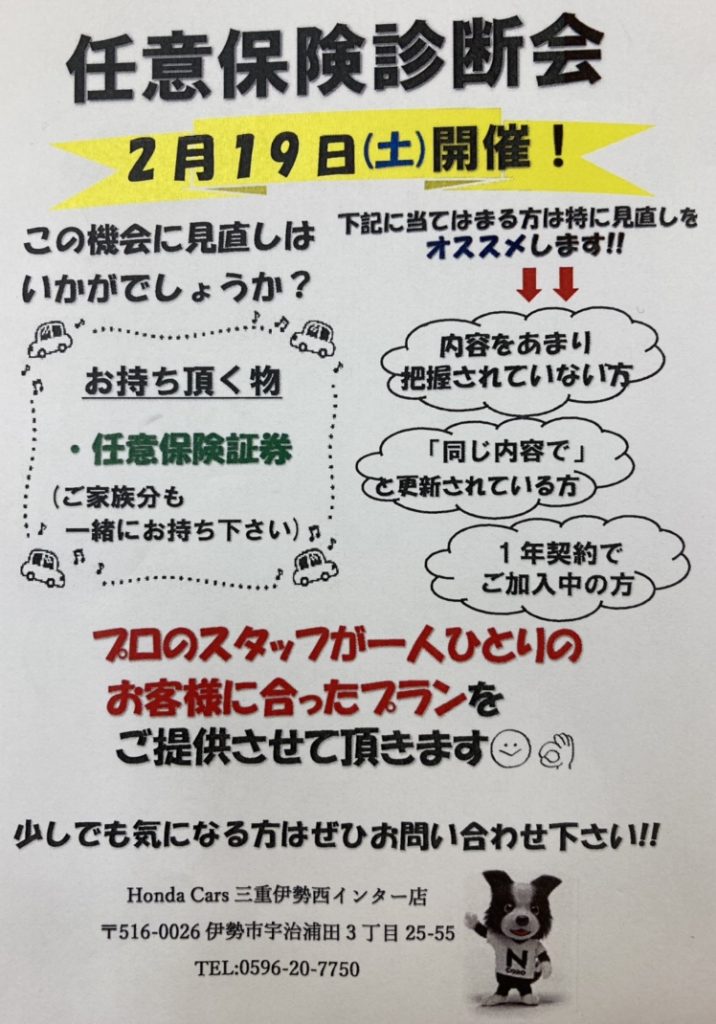 任意保険診断会
2月19日(土)開催!
この機会に見直しは
いかがでしょうか?
下記に当てはまる方は特に見直しを
オススメします!!
お持ち頂く物
・任意保険証券
(ご家族分も
一緒にお持ち下さい)
内容をあまり
把握されていない方
「同じ内容で」
と更新されている方
1年契約で
ご加入中の方
プロのスタッフが一人ひとりの
お客様に合ったプランを
ご提供させて頂きます
少しでも気になる方はぜひお問い合わせ下さい!!
Honda Cars 三重伊勢西インター店
〒516-0026 伊勢市宇治浦田3丁目25-55
TEL:0596-20-7750
N